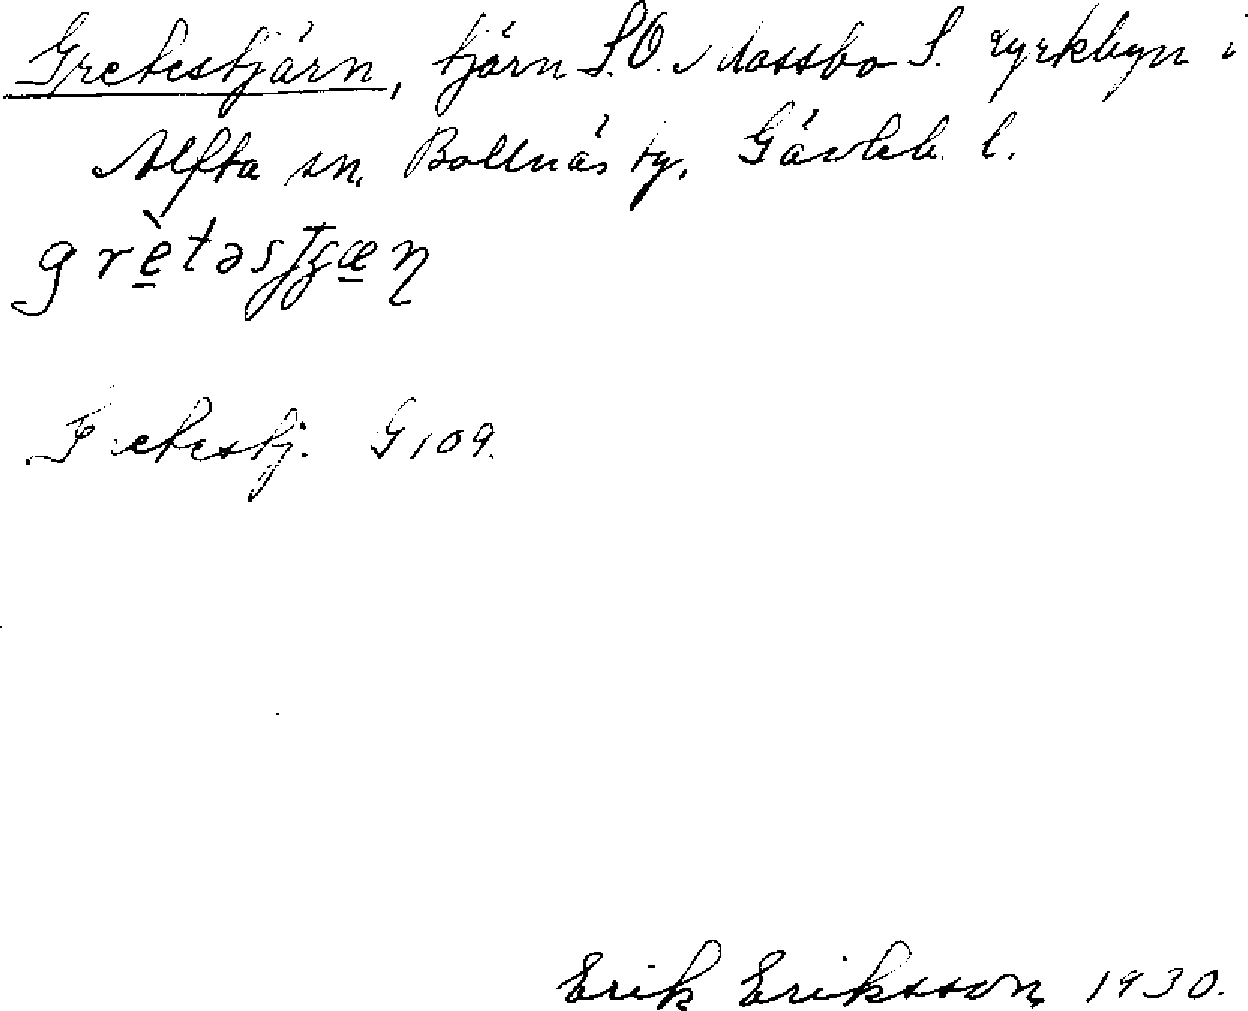 Gretestjärn, tjärn S.O. Mossbo S. kyrkbyn i
Alfta sn. Bollnäs tg. Gävleb. l.
Gretestj. G 109.
Erik Eriksson 1930.